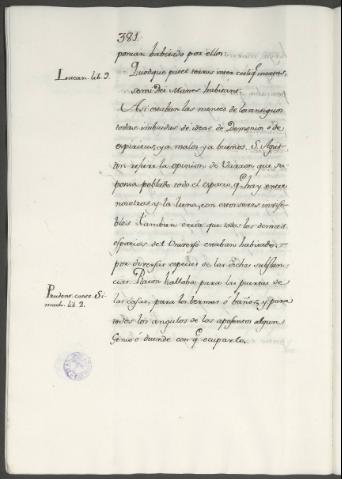 381
ponian habitado por ellos
Lucan. lib. 9.
Quodque patet terras inter coeliq. meatus,
semi Dei Manes habitant.
Asi estaban las mentes de los antiguos
todas imbuidas de ideas de Demonios ò de
espiritus, ya malos, ya buenos. S. Agus-
tin refiere la opinion de Varron que su-
ponia poblado todo el espacio, q.e hay entre
nosotros y la luna, con criaturas invisi-
bles. Tambien creia que todos los demas
espacios del Universo estaban habitados,
por diversas especies de las dichas substan-
cias. Pues hallaba para las puertas de
Prudent. contr. Si-
mach. lib. 2.
las casas, para las termas ò baños, y para
todos los angulos de los aposentos algun
Genio ò duende con q.e ocuparlos.